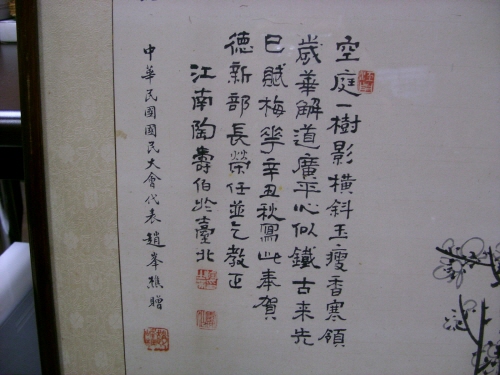 空庭一樹影橫斜玉瘦香寒領
歲華解道廣平心似鐵古来先
已賦梅花辛丑秋寫此奉賀
德新部長榮任並乞教正
江南陶壽伯於臺北
中華民國國民大會代表趙峯樵贈